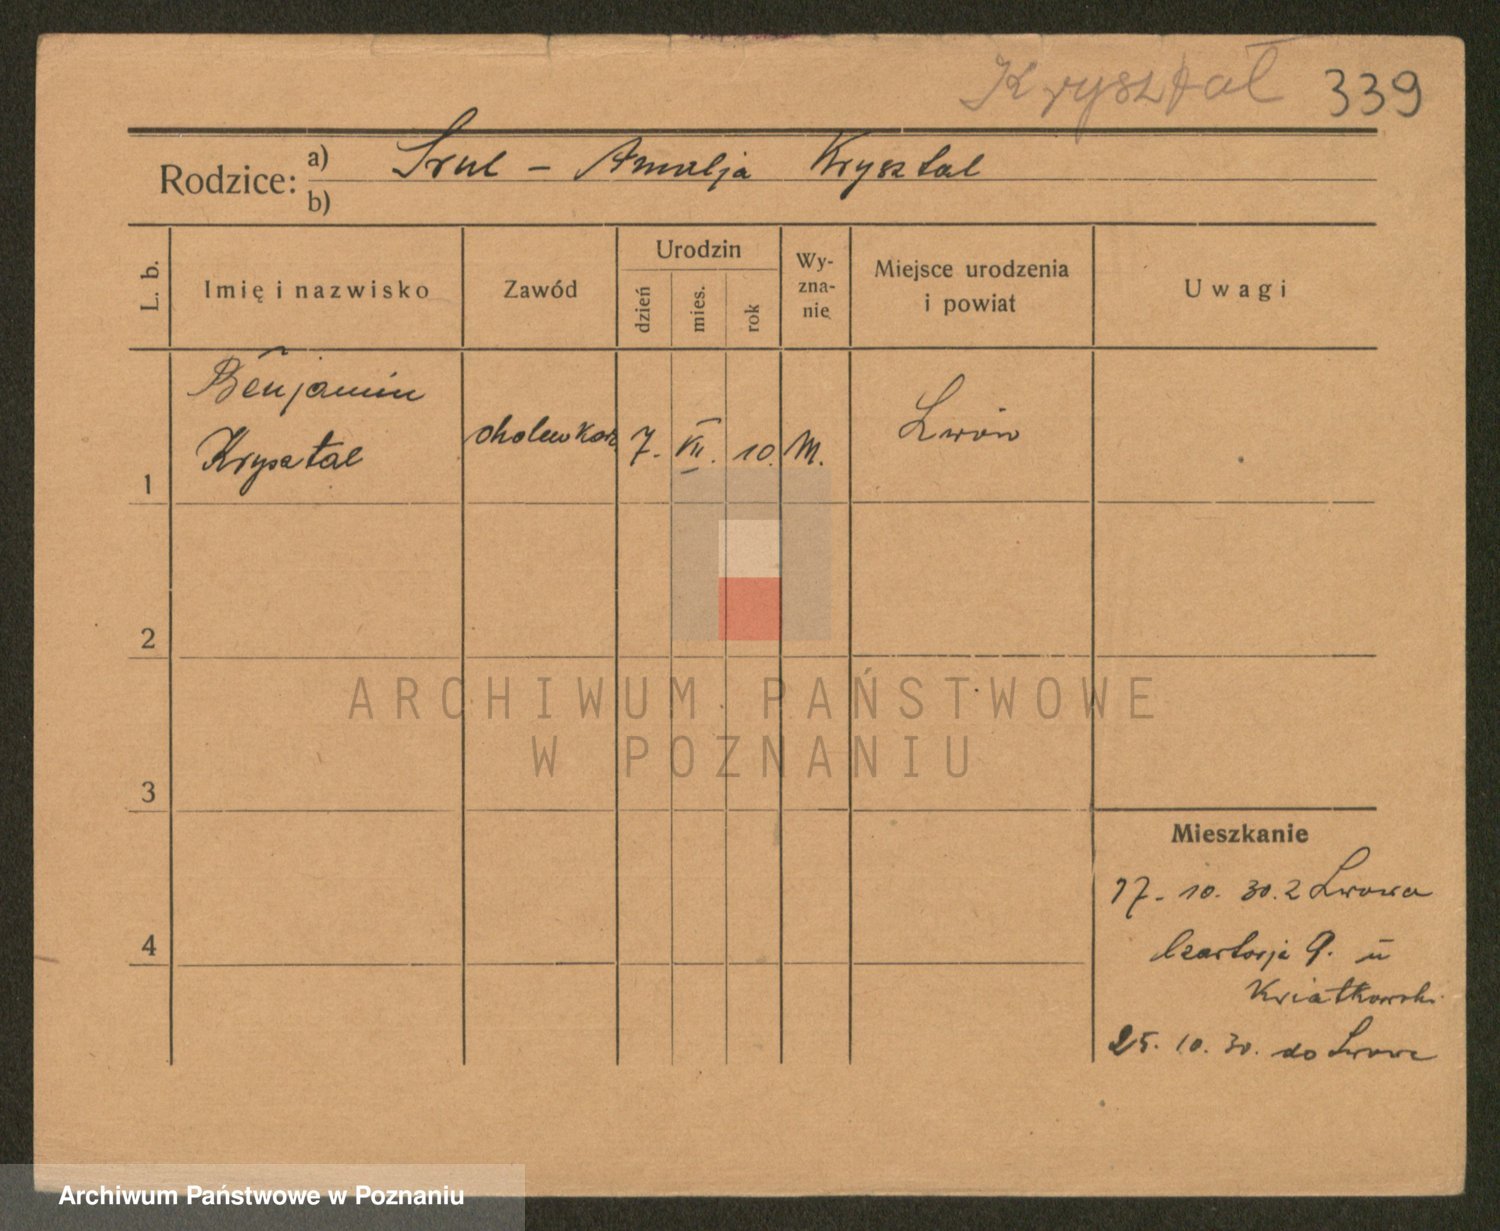 Kryształ 339
Rodzice: a) Srul – Amalja Krysztal
b)
L. b.
Imię i nazwisko
Zawód
Urodzin
dzień
mies.
rok
Wy-
zna-
nie
Miejsce urodzenia
i powiat
Uwagi
Benjamin
Krysztal
1
cholewkarz
7.
VII.
10.
M.
Lwów
2
3
4
Mieszkanie
17. 10. 30. z Lwowa
Czartorja 9. u
Kwiatkowski.
25. 10. 30. do Lwowa
ARCHIWUM PAŃSTWOWE
W POZNANIU
Archiwum Państwowe w Poznaniu